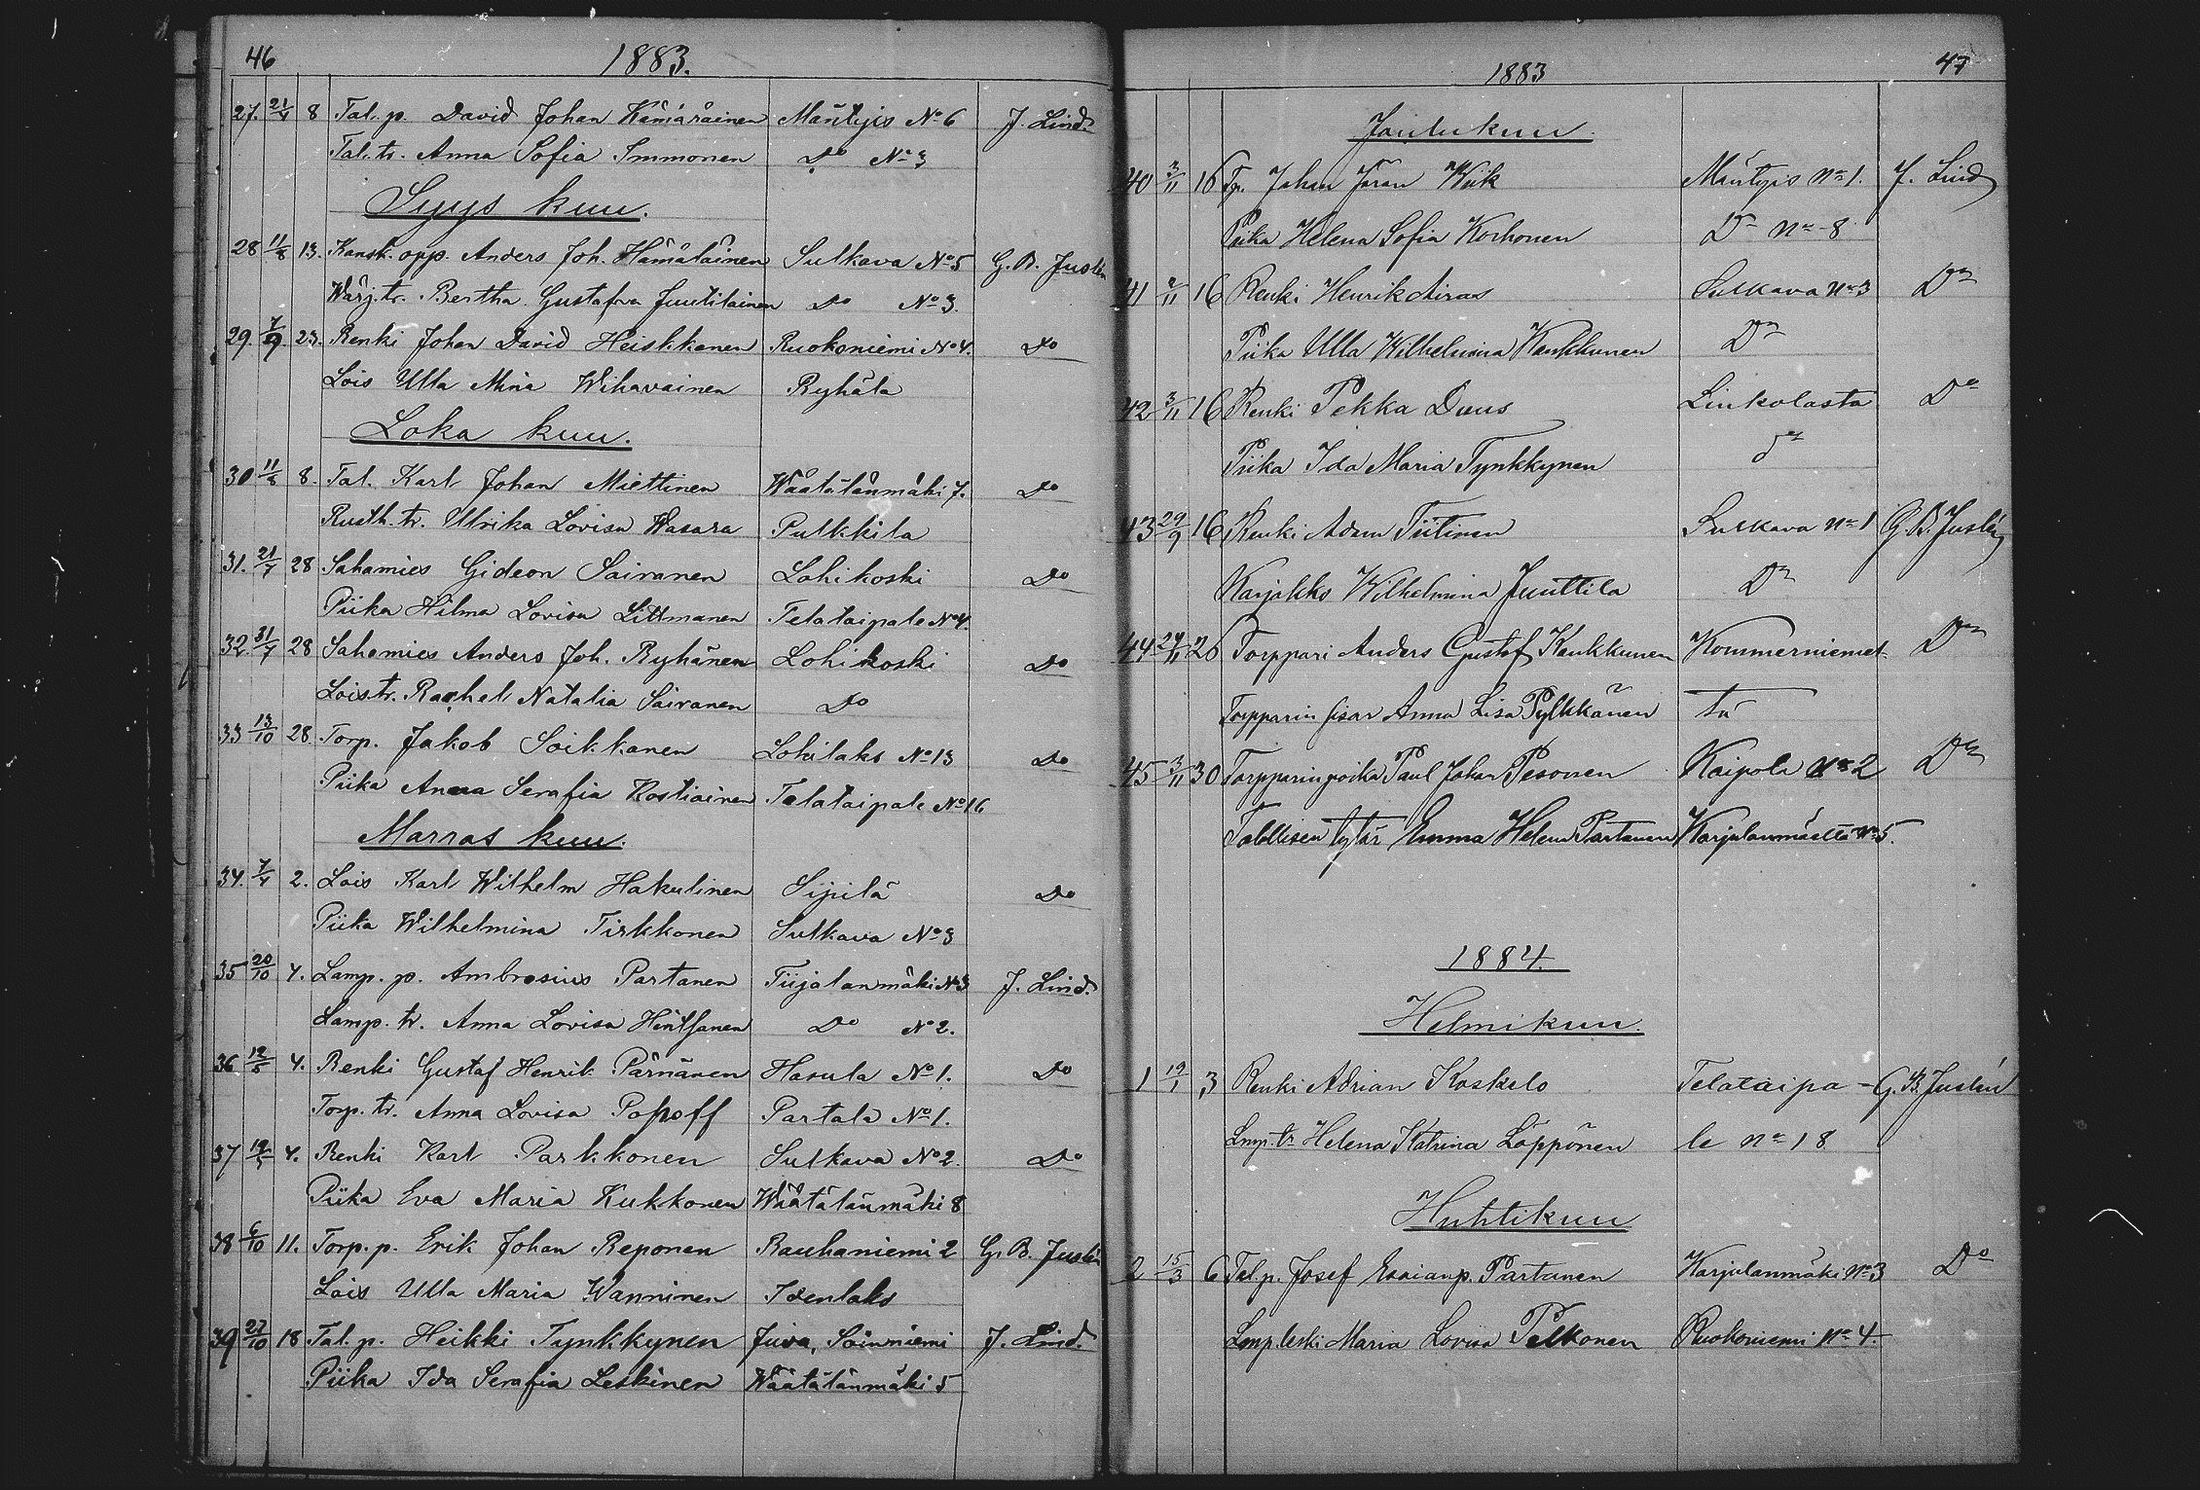 46
1883.
27. 21/4 8 Tal. p. David Johan Kämäräinen Mäntyjs No 6 J. Lind.
Tal. tr. Anna Sofia Immonen Do No 3
Syys kuu.
28 11/8 13. Kansk. opp. Anders Joh. Hämäläinen Sulkava No 5 G. B. Juslén
Wärj. tr. Bertha Gustafva Juutilainen Do No 3.
29. 7/9 23. Renki Johan David Heiskkanen Ruokoniemi No 4. Do
Lois Ulla Mina Wihavainen Ryhälä
Loka kuu.
30 11/8 8. Tal. Karl Johan Miettinen Wäätälänmäki 7. Do
Rusth. tr. Ulrika Lovisa Wasara Pulkkila
31. 21/7 28 Sahamies Gideon Sairanen Lohikoski Do
Piika Hilma Lovisa Littmanen Telataipale No 4.
32 31/7 28 Sahamies Anders Joh. Ryhänen Lohikoski Do
Lois. tr. Rachel Natalia Sairanen Do
33 13/10 28. Torp. Jakob Soikkanen Lohilaks No 13 Do
Piika Anna Serafia Kostiainen Telataipale No 16
Marras kuu.
34. 7/4 2. Lois Karl Wilhelm Hakulinen Sipilä Do
Piika Wilhelmina Tirkkonen Sulkava No 3
35 20/10 4. Lamp. p. Ambrosius Partanen Tiijalanmäki No 3 J. Lind.
Lamp. tr. Anna Lovisa Hintsanen Do No 2.
36 12/5 4. Renki Gustaf Henrik Pärnänen Hasula No 1. Do
Torp. tr. Anna Lovisa Popoff Partala No 1.
37 4. Renki Karl Parkkonen Sulkava No 2. Do
Piika Eva Maria Kukkonen Wäätälänmäki 8
38 6/10 11. Torp. p. Erik Johan Reponen Rauhaniemi 2 G. B. Juslén
Lois Ulla Maria Wanninen Idenlaks
39 27/10 18 Tal. p. Heikki Tynkkynen Juva, Soinniemi J. Lind.
Piika Ida Serafia Leskinen Wäätälänmäki 5
47
1883
Joulukuu.
40 3/11 16 Tp. Johan Jöran Wiik Mäntyjs No 1. J. Lind
Piika Helena Sofia Korhonen Do No 8
41 2/11 16 Renki Henrik Airas Sulkava No 3 Do
Piika Ulla Wilhelmina Kaukkunen Do
42 3/11 16 Renki Pekka Duus Linkolasta Do
Piika Ida Maria Tynkkynen do
43 29/9 16 Renki Adam Tiitinen Sulkava No 1 G. B. Juslén
Karjakko Wilhelmina Juuttila Do
44 24/11 26 Torppari Anders Gustaf Kaukkunen Kommerniemes- Do
Torpparin sisar Anna Lisa Pylkkänen tä
45 3/11 30 Torpparinpoika Paul Johan Pesonen Kaipola No 2 Do
Talollisen tytär Emma Helena Partanen Karjulanmäeltä No 5.
1884.
Helmikuu.
1 19/1 3 Renki Adrian Koskelo Telataipa- G. B. Juslén
Lmp. tr Helena Katrina Löppönen le No 18
Huhtikuu
2 15/3 6 Tal p. Josef Esaianp. Partanen Karjulanmäki No 3 Do
Lmp. leski Maria Lovisa Pelkonen Ruokoniemi No 4.